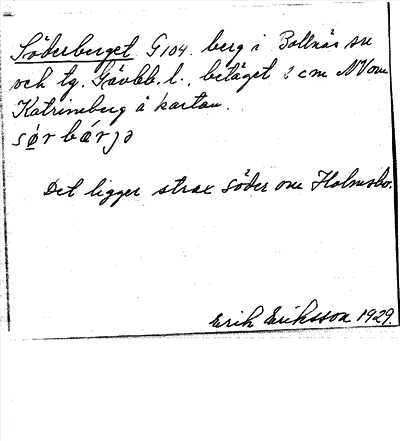 Söderberget G104. berg i Bollnäs sn
och tg. Gävlb. l., beläget 2 cm NV om
Katrineberg å kartan.
sǿr bǽrjə
Det ligger strax söder om Holmsbo.
Erik Eriksson 1929.